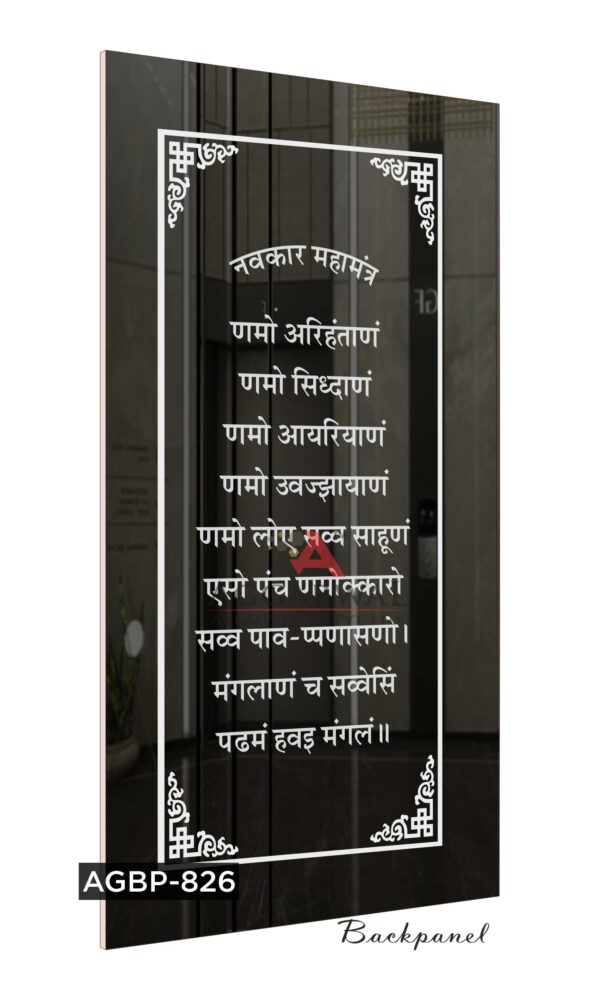 नवकार महामंत्र
णमो अरिहंताणं
णमो सिध्दाणं
णमो आयरियाणं
णमो उवज्झायाणं
णमो लोए सव्व साहूणं
एसो पंच णमोक्कारो
सव्व पाव-प्पणासणो।
मंगलाणं च सव्वेसिं
पढमं हवइ मंगलं॥
AGBP-826
Backpanel